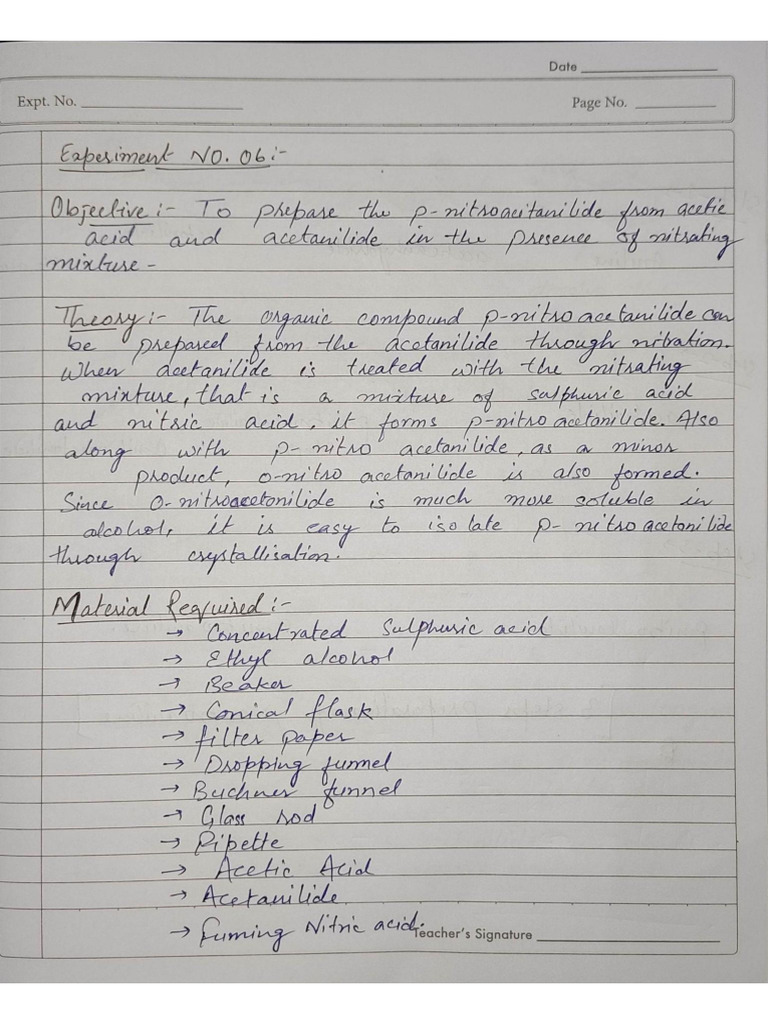 Date
Expt. No.
Page No.
Experiment NO. 06:-
Objective:- To prepare the p-nitroacitanilide from acetic
acid and acetanilide in the presence of nitrating
mixture-
Theory:- The organic compound p-nitro acetanilide can
be prepared from the acetanilide through nitration.
When acetanilide is treated with the nitrating
mixture, that is a mixture of sulphuric acid
and nitric acid, it forms p-nitro acetonilide. Also
along with p-nitro acetanilide, as a minor
product, o-nitro acetanilide is also formed.
Since O-nitroacetonilide is much more soluble in
alcohol, it is easy to isolate p-nitro acetonilide
through crystallisation.
Material Required:-
→ Concentrated Sulphuric acid
→ Ethyl alcohol
→ Beaker
→ Conical flask
→ filter paper
→ Dropping funnel
→ Buchner funnel
→ Glass rod
→ Pipette
→ Acetic Acid
→ Acetanilide
→ Fuming Nitric acid.
Teacher's Signature